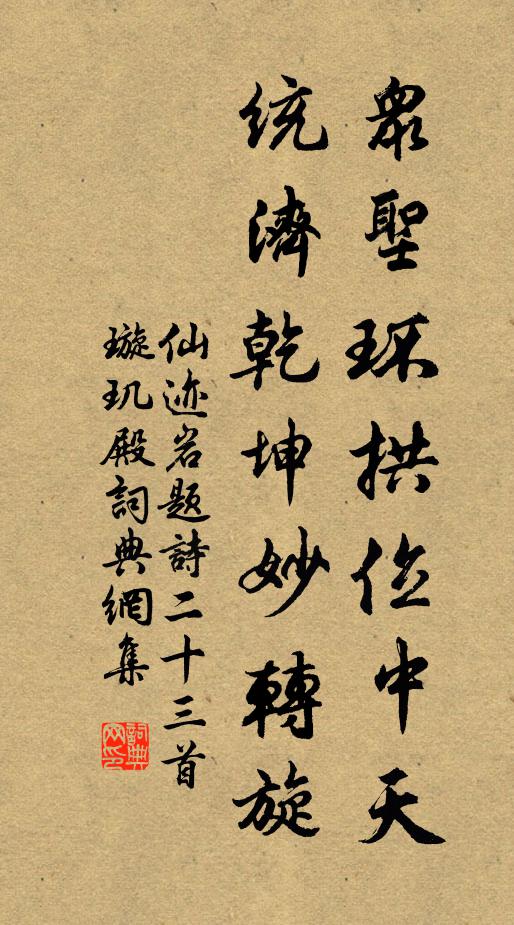 衆聖环拱位中天
統濟乾坤妙轉旋
仙迹岩题詩二十三首
璇玑殿詞典網集
詞典网印